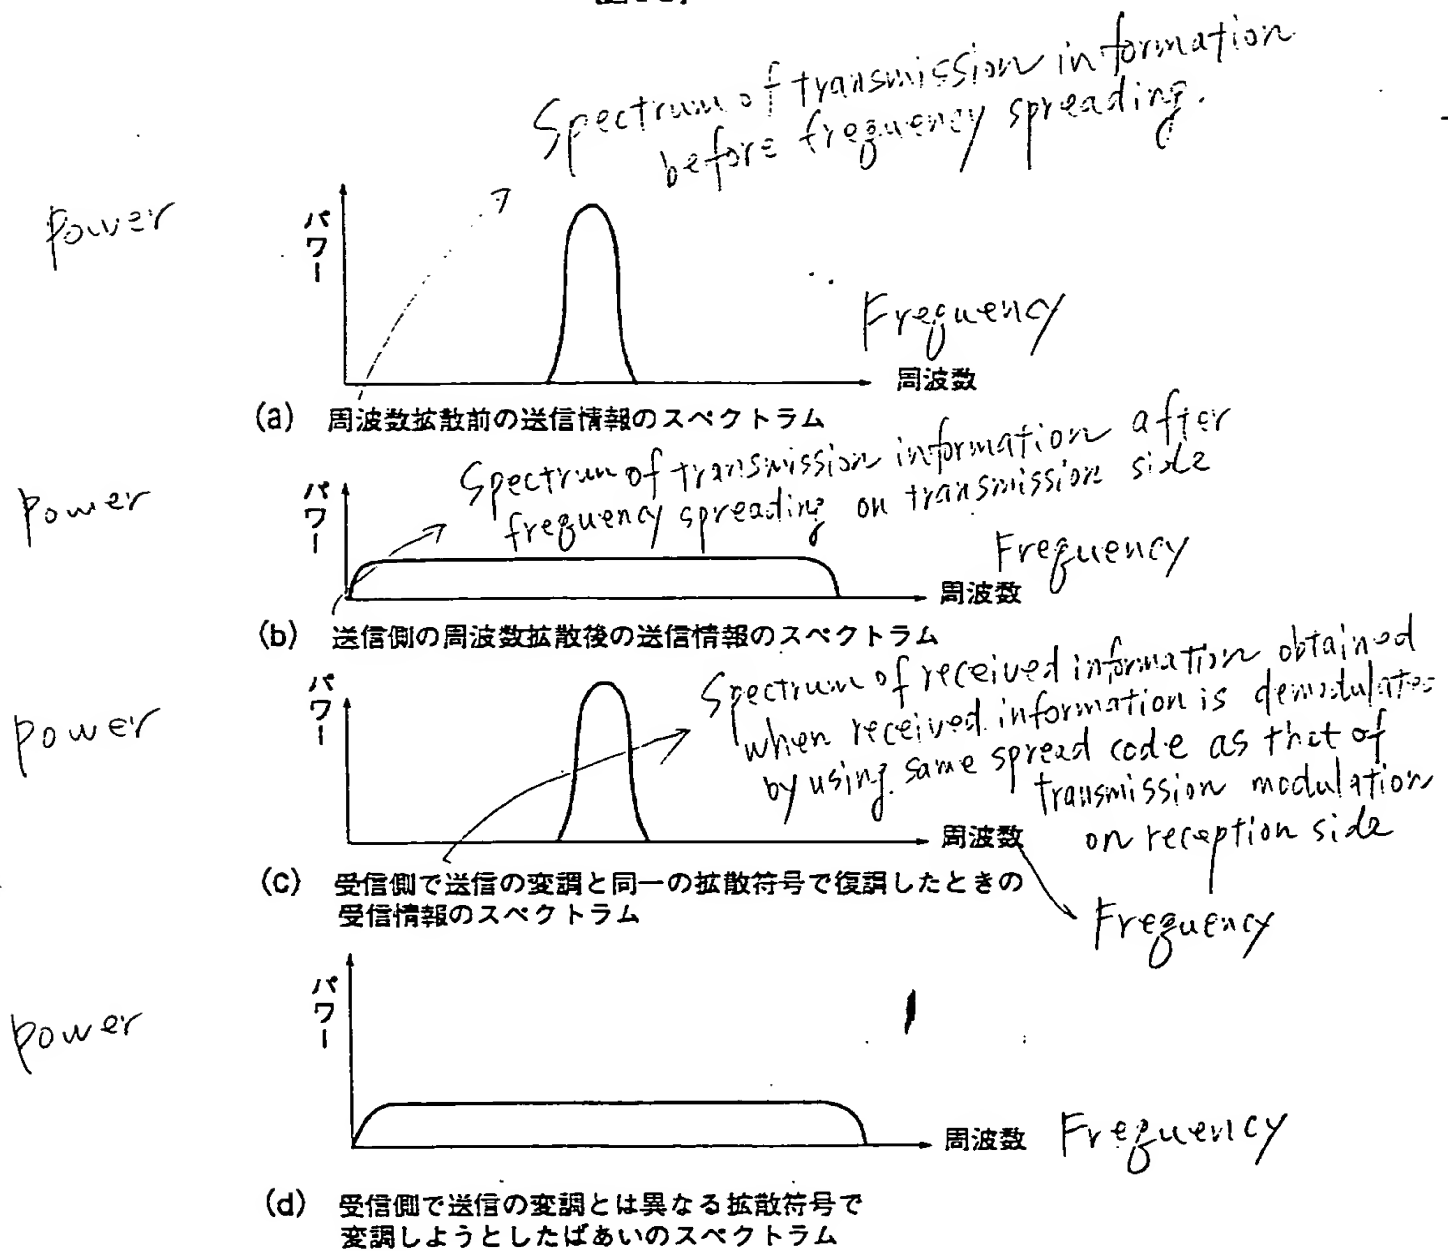 Spectrum of transmission information
before frequency spreading.
power
パワー
Frequency
周波数
(a) 周波数拡散前の送信情報のスペクトラム
power
パワー
Spectrum of transmission information after
frequency spreading on transmission side
Frequency
周波数
(b) 送信側の周波数拡散後の送信情報のスペクトラム
power
パワー
Spectrum of received information obtained
when received information is demodulated
by using same spread code as that of
transmission modulation
on reception side
周波数
(c) 受信側で送信の変調と同一の拡散符号で復調したときの
受信情報のスペクトラム
Frequency
power
パワー
周波数
Frequency
(d) 受信側で送信の変調とは異なる拡散符号で
変調しようとしたばあいのスペクトラム